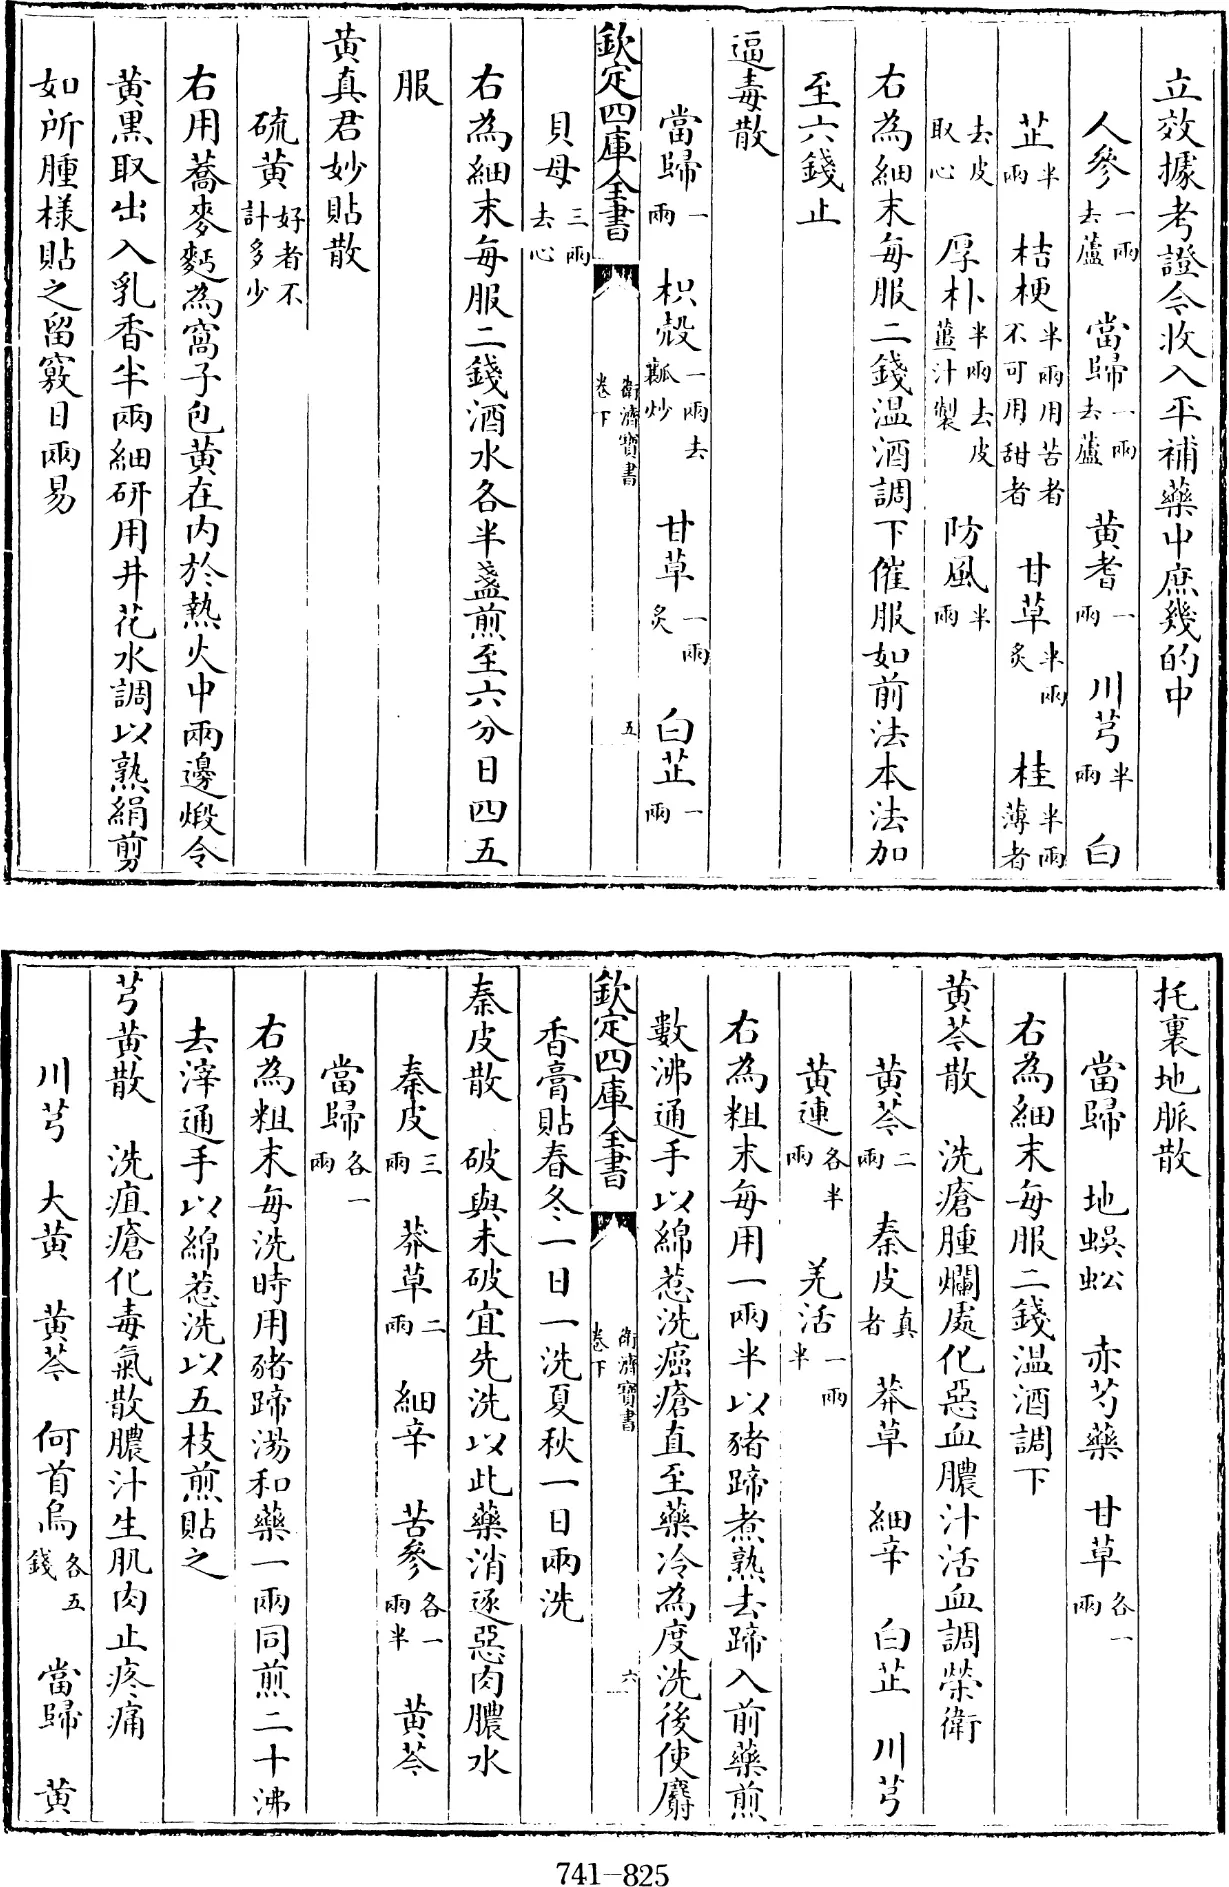 立效據考證令收入平補藥中庶幾的中
人參一兩去蘆 當歸一兩去蘆 黄耆一兩 川芎半兩 白
芷半兩 桔梗半兩用苦者不可用甜者 甘草半兩炙 桂半兩薄者
去皮取心 厚朴半兩去皮薑汁製 防風半兩
右為細末每服二錢温酒調下催服如前法本法加
至六錢止
逼毒散
當歸一兩 枳殻一兩去瓤炒 甘草一兩炙 白芷一兩
欽定四庫全書 衛濟寶書卷下 五
貝母三兩去心
右為細末每服二錢酒水各半盞煎至六分日四五
服
黄真君妙貼散
硫黄好者不計多少
右用蕎麥麪為窩子包黄在内於熱火中兩邊煅令
黄黒取出入乳香半兩細研用井花水調以熟絹剪
如所腫樣貼之留竅日兩易
托裏地脈散
當歸 地蜈蚣 赤芍藥 甘草各一兩
右為細末每服二錢温酒調下
黄芩散 洗瘡腫爛處化惡血膿汁活血調榮衛
黄芩二兩 秦皮真者 莽草 細辛 白芷 川芎
黄連各半兩 羌活一兩半
右為粗末每用一兩半以豬蹄煮熟去蹄入前藥煎
數沸通手以綿惹洗癌瘡直至藥冷為度洗後使麝
欽定四庫全書 衛濟寶書卷下 六
香膏貼春冬一日一洗夏秋一日兩洗
秦皮散 破與未破宜先洗以此藥消逐惡肉膿水
秦皮三兩 莽草二兩 細辛 苦參各一兩半 黄芩
當歸各一兩
右為粗末每洗時用豬蹄湯和藥一兩同煎二十沸
去滓通手以綿惹洗以五枝煎貼之
芎黄散 洗疽瘡化毒氣散膿汁生肌肉止疼痛
川芎 大黄 黄芩 何首烏各五錢 當歸 黄
741-825